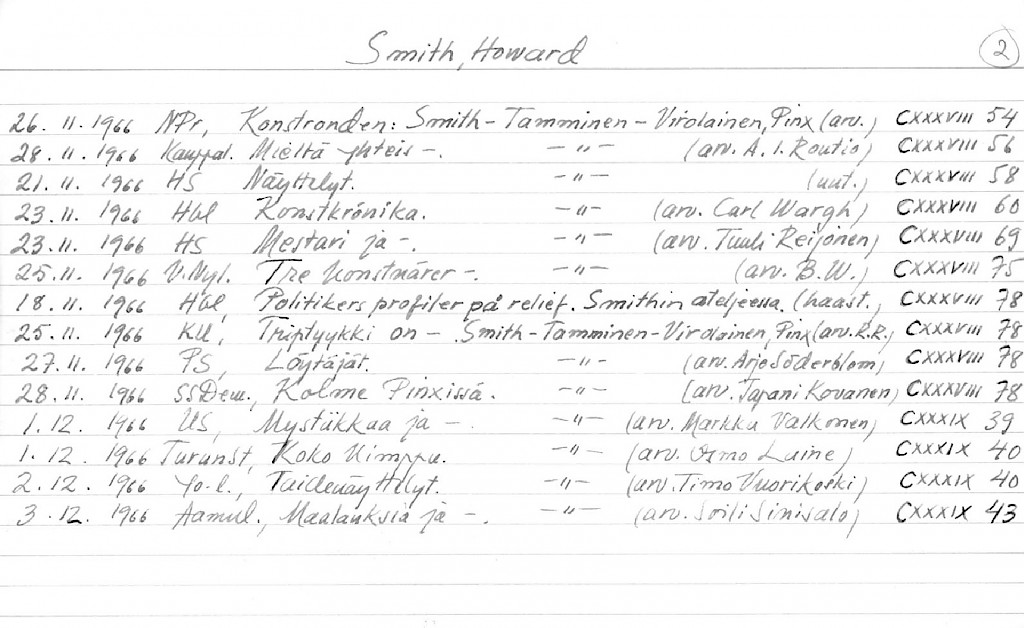 Smith, Howard
2
26. 11. 1966 NPr, Konstronden: Smith - Tamminen - Virolainen, Pinx (arv.) CXXXVIII 54
28. 11. 1966 Kauppal. Mieltä yhteis -. -"- (arv. A. I. Routio) CXXXVIII 56
21. 11. 1966 HS Näyttelyt. -"- (uut.) CXXXVIII 58
23. 11. 1966 Hbl Konstkrönika. -"- (arv. Carl Wargh) CXXXVIII 60
23. 11. 1966 HS Mestari ja -. -"- (arv. Tuuli Reijonen) CXXXVIII 69
25. 11. 1966 V. Nyl. Tre konstnärer -. (arv. B. W.) CXXXVIII 75
18. 11. 1966 Hbl, Politikers profiler på relief. Smithin ateljeessa. (haast. CXXXVIII 78
25. 11. 1966 KU, Triptyykki on - Smith - Tamminen - Virolainen, Pinx (arv. R. R.) CXXXVIII 78
27. 11. 1966 PS, Löytäjät. -"- (arv. Arjo Söderblom) CXXXVIII 78
28. 11. 1966 SSDem., Kolme Pinxissä. -"- (arv. Tapani Kovanen) CXXXVIII 78
1. 12. 1966 US, Mystiikkaa ja -. -"- (arv. Markku Valkonen) CXXXIX 39
1. 12. 1966 Turunst, Koko kimppu. -"- (arv. Osmo Laine) CXXXIX 40
2. 12. 1966 Yo-l., Taidenäyttelyt. -"- (arv. Timo Vuorikoski) CXXXIX 40
3. 12. 1966 Aamul., Maalauksia ja -. -"- (arv. Soili Sinisalo) CXXXIX 43